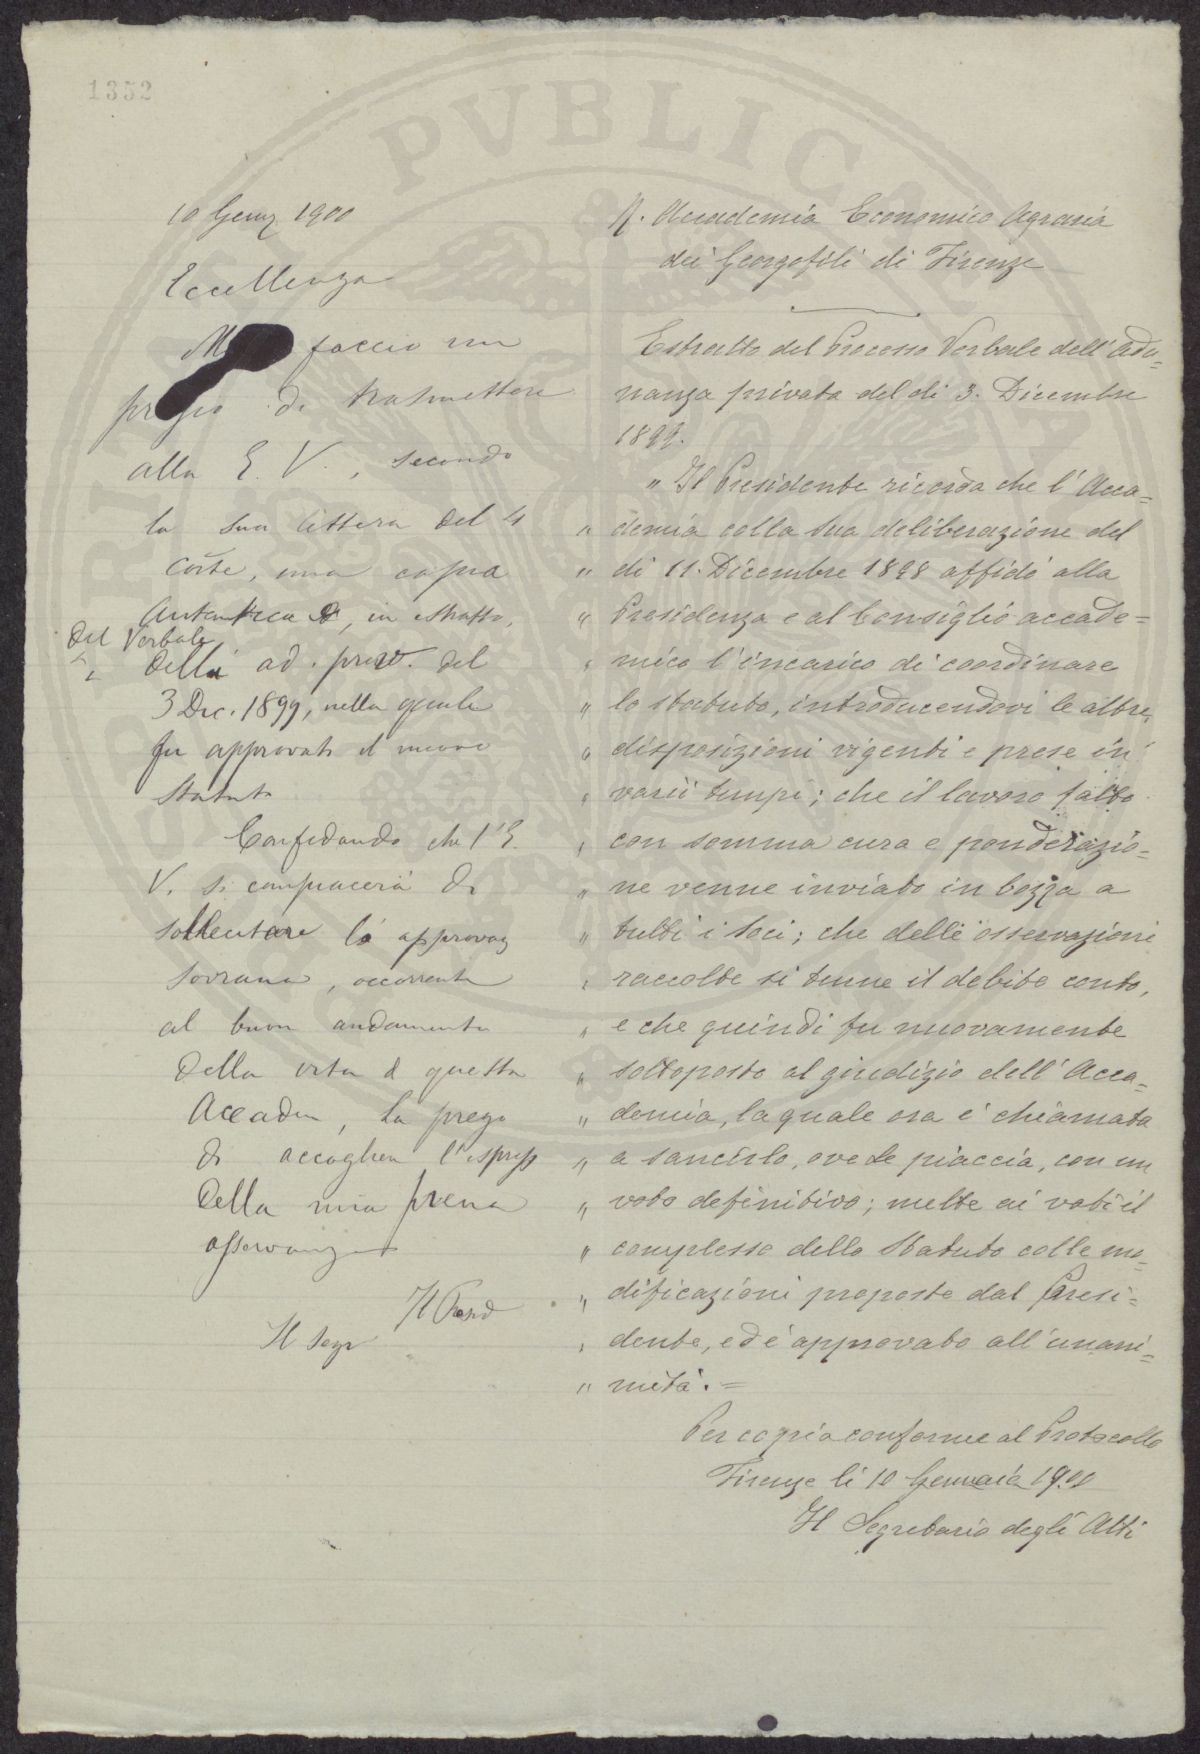 1352
10 Genn 1900
Eccellenza
Mi faccio un
pregio di trasmettere
alla E. V., secondo
la sua lettera del 4
corte, una copia
autentica, in estratto,
del Verbale
della ad. priv. del
3 Dic. 1899, nella quale
fu approvato il nuovo
Statuto
Confidando che l'E.
V. si compiacerà di
sollecitare la approvaz
sovrana, occorrente
al buon andamento
della vita di questa
Accadem, la prego
di accogliere l'espress
della mia piena
osservanza
Il Presid
Il Segr
R. Accademia Economico Agraria
dei Georgofili di Firenze
Estratto del Processo Verbale dell'Adu=
nanza privata del dì 3. Dicembre
1899.
" Il Presidente ricorda che l'Acca=
" demia colla sua deliberazione del
" dì 11. Dicembre 1898 affidò alla
" Presidenza e al Consiglio accade=
" mico l'incarico di coordinare
" lo statuto, introducendovi le altre
" disposizioni vigenti e prese in
" varii tempi; che il lavoro fatto
" con somma cura e ponderazio=
" ne venne inviato in bozza a
" tutti i Soci; che delle osservazioni
" raccolte si tenne il debito conto,
" e che quindi fu nuovamente
" sottoposto al giudizio dell'Acca=
" demia, la quale ora è chiamata
" a sancirlo, ove le piaccia, con un
" voto definitivo; mette ai voti il
" complesso dello Statuto colle mo=
" dificazioni proposte dal Presi=
" dente, ed è approvato all'unani=
" mità. =
Per copia conforme al Protocollo
Firenze li 10 Gennaio 1900
Il Segretario degli Atti
PVBLICAE